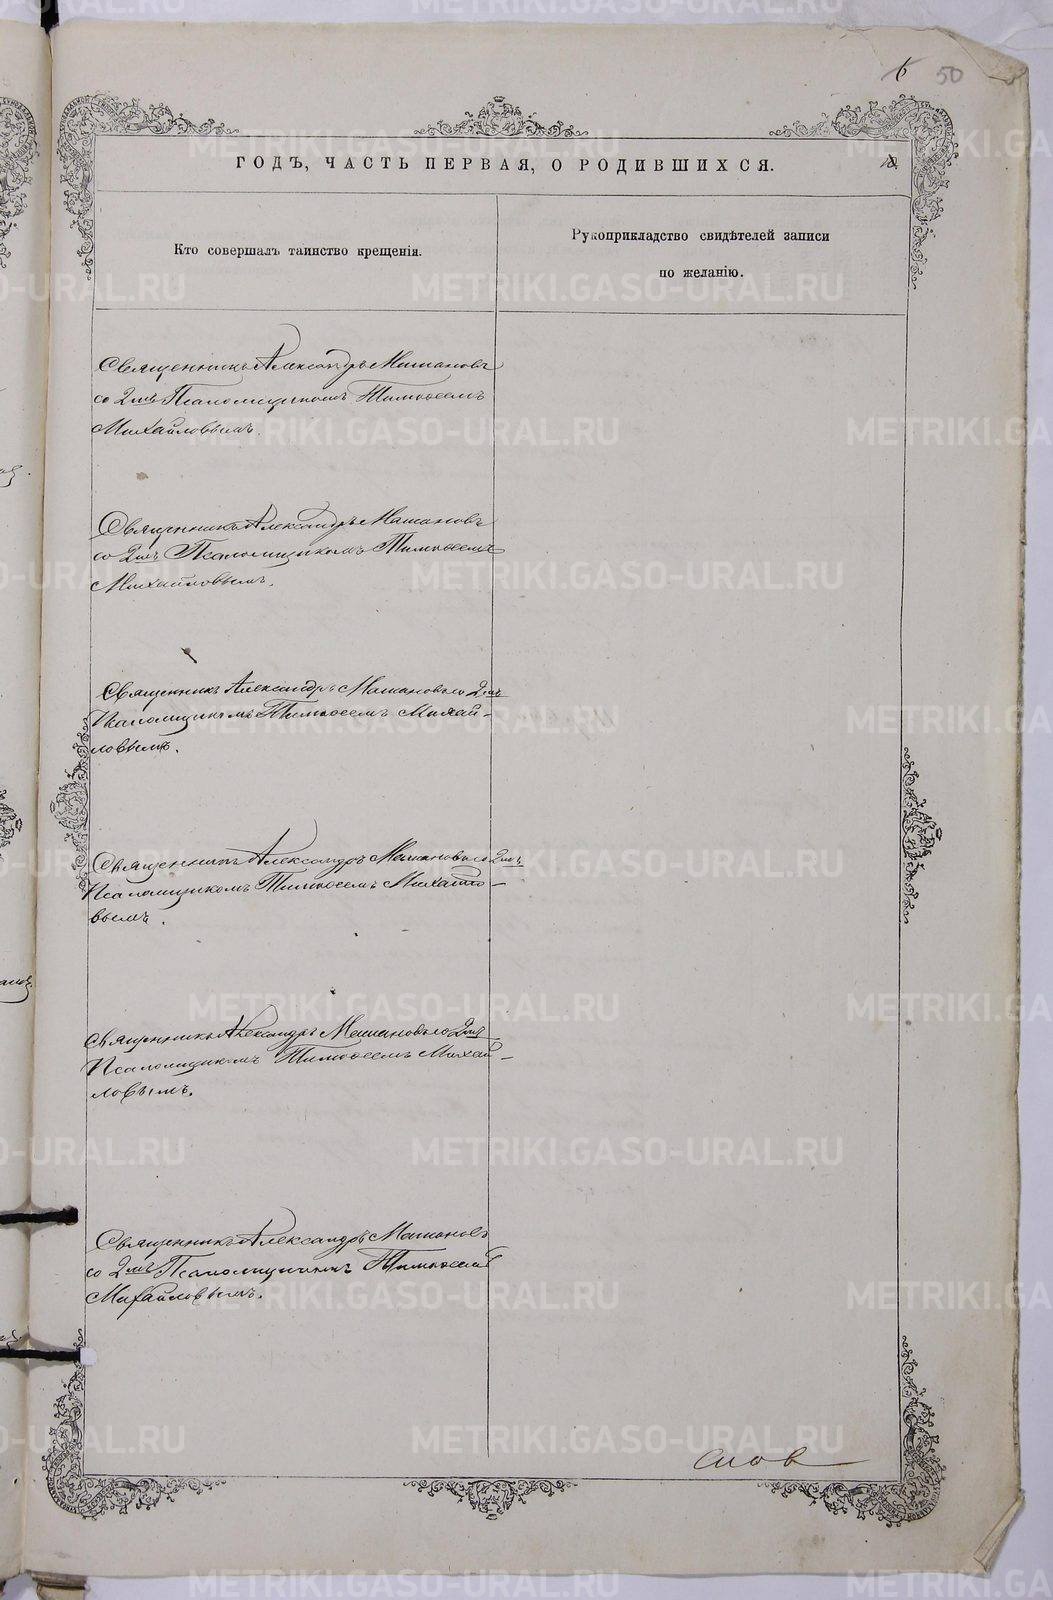 6 50
ГОДЪ, ЧАСТЬ ПЕРВАЯ, О РОДИВШИХСЯ.
Кто совершалъ таинство крещенія.
Рукоприкладство свидѣтелей записи
по желанію.
Священникъ Александръ Машановъ
со 2мъ Псаломщикомъ Тимоѳеемъ
Михайловымъ.
Священникъ Александръ Машановъ
со 2мъ Псаломщикомъ Тимоѳеемъ
Михайловымъ.
Священникъ Александръ Машановъ со 2мъ
Псаломщикомъ Тимоѳеемъ Михай-
ловымъ.
Священникъ Александръ Машановъ со 2мъ
Псаломщикомъ Тимоѳеемъ Михайло-
вымъ.
Священникъ Александръ Машановъ со 2мъ
Псаломщикомъ Тимоѳеемъ Михай-
ловымъ.
Священникъ Александръ Машановъ
со 2мъ Псаломщикомъ Тимоѳеемъ
Михайловымъ.
METRIKI.GASO-URAL.RU